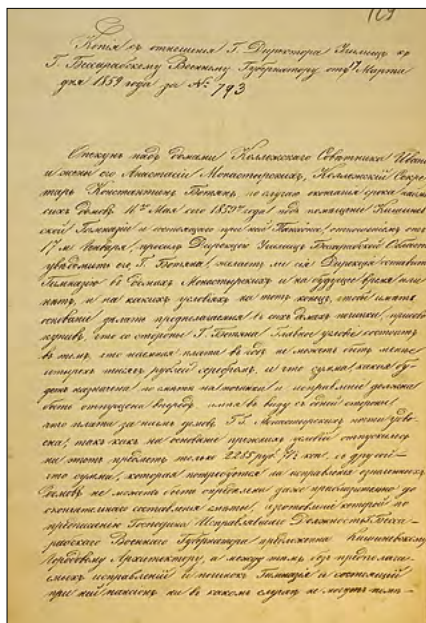 169
Копія съ отношенія Г. Директора Училищъ къ
Г. Бессарабскому Военному Губернатору отъ 17 Марта
дня 1859 года за № 793
Опекунъ надъ домами Коллежскаго Советника Ивана
и жены его Анастасіи Монастырскихъ, Коллежскій Секре-
тарь Константинъ Ботянъ, по случаю окончанія срока найма
сихъ домовъ 16го Мая сего 1859го года подъ помещеніе Кишинев-
ской Гимназіи и состоящаго при ней Пансіона, отношеніемъ отъ
17го Января, просилъ Дирекцію Училищъ Бессарабской Области
уведомить его, Г. Ботяна, желаетъ ли сія Дирекція оставить
Гимназію въ домахъ Монастырскихъ и на будущее время или
нетъ, и на какихъ условіяхъ на тотъ конецъ, чтобы иметь
основаніе делать предполагаемыя въ сихъ домахъ починки, присово-
купивъ, что со стороны Г. Ботяна главное условіе состоитъ
въ томъ, что наемная плата въ годъ не можетъ быть менее
четырехъ тысячъ рублей серебромъ, и что сумма какая бу-
детъ назначена по смете на починки и исправленіе должна
быть отпущена впередъ. Имея въ виду съ одной стороны
что плата за наемъ домовъ Г.Г. Монастырскихъ почти удво-
ена, такъ какъ на основаніи прежнихъ условій отпускалось
на этотъ предметъ только 2285 руб. 71½ коп., съ другой —
что сумма, которая потребуется на исправленія означенныхъ
домовъ не можетъ быть определена даже приблизительно до
окончательнаго составленія сметы, изготовленіе которой по
предписанію Господина Исправлявшаго Должность Бесса-
рабскаго Военнаго Губернатора предложено Кишиневскому
Городовому Архитектору, а между темъ безъ предполагае-
мыхъ исправленій и починокъ Гимназія и состоящій
при ней пансіонъ ни въ какомъ случае не могутъ поме-